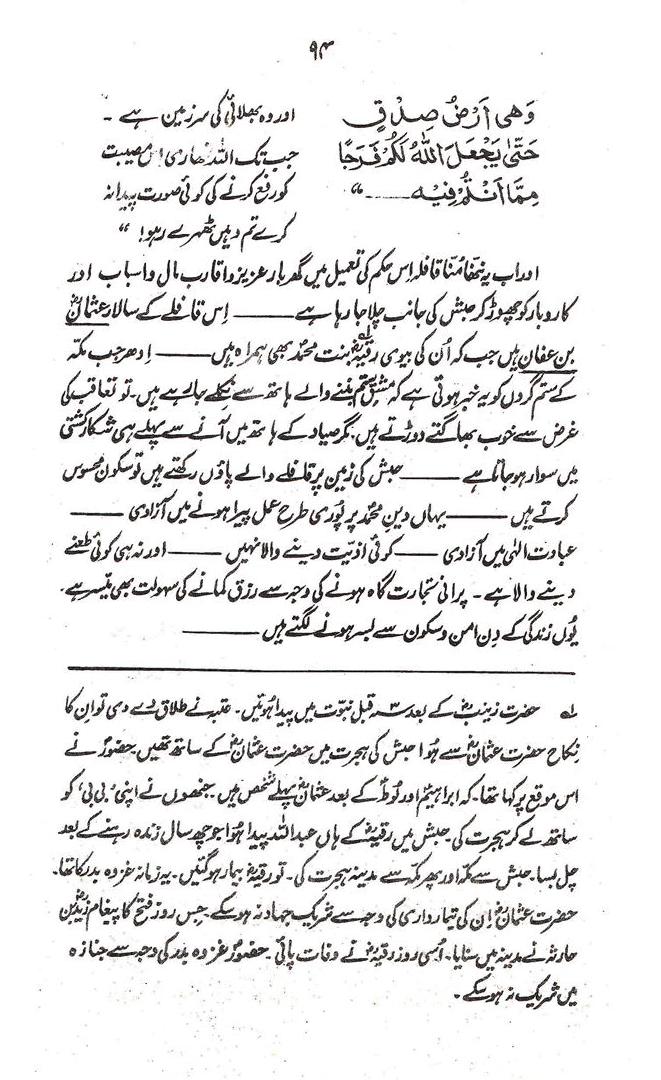 ۹۴
وَهِيَ اَرْضُ صِدْقٍ
حَتّٰى يَجْعَلَ اللهُ لَكُمْ فَرَجًا
مِمَّا اَنْتُمْ فِيْهِ ــــ "
اور وہ بھلائی کی سرزمین ہے ۔
جب تک اللہ تمہاری اس مصیبت
کو رفع کرنے کی کوئی صورت پیدا نہ
کرے تم وہیں ٹھہرے رہو! "
اور اب یہ ننھا مُنّا قافلہ اِس حکم کی تعمیل میں گھر بار عزیز و اقارب مال و اسباب اور
کاروبار کو چھوڑ کر حبش کی جانب چلا جا رہا ہے ــــــ اِس قافلے کے سالار عثمانؓ
بن عفان ہیں جب کہ اُن کی بیوی رقیہؓ بنت محمدؐ بھی ہمراہ ہیں ــــــ اِدھر جب مکہ
کے ستم گردوں کو یہ خبر ہوتی ہے کہ مشقِ ستم بننے والے ہاتھ سے نکلے جا رہے ہیں۔ تو تعاقب کی
غرض سے خوب بھاگتے دوڑتے ہیں۔ مگر صیاد کے ہاتھ میں آنے سے پہلے ہی شکار کشتی
میں سوار ہو جاتا ہے ــــــ حبش کی زمین پر قافلے والے پاؤں رکھتے ہیں تو سکون محسوس
کرتے ہیں ــــــ یہاں دینِ محمدؐ پر پوری طرح عمل پیرا ہونے میں آزادی ــــــ
عبادت الٰہی میں آزادی ــــــ کوئی اذیّت دینے والا نہیں ــــــ اور نہ ہی کوئی طعنے
دینے والا ہے ۔ پرانی تجارت گاہ ہونے کی وجہ سے رزق کمانے کی سہولت بھی میّسر ہے۔
یُوں زندگی کے دِن امن و سکون سے بسر ہونے لگتے ہیں ــــــ
لہ حضرت زینبؓ کے بعد ۳ سہ قبل نبوت میں پیدا ہوئیں۔ عتبہ نے طلاق دے دی تو ان کا
نکاح حضرت عثمانؓ سے ہُوا حبش کی ہجرت میں حضرت عثمانؓ کے ساتھ تھیں حضورؐ نے
اس موقع پر کہا تھا۔ کہ ابراہیمؑ اور لُوطؑ کے بعد عثمانؓ پہلے شخص ہیں۔ جنھوں نے اپنی بی بی کو
ساتھ لے کر ہجرت کی۔ حبش میں رقیہؓ کے ہاں عبداللہ پیدا ہُوا جو چھ سال زندہ رہنے کے بعد
چل بسا۔ حبش سے مکہ اور پھر مکہ سے مدینہ ہجرت کی۔ تو رقیہؓ بیمار ہو گئیں۔ یہ زمانہ غزوہ بدر کا تھا۔
حضرت عثمانؓ اِن کی تیمارداری کی وجہ سے شریک جہاد نہ ہو سکے۔ جس روز فتح کا پیغام زیدؓ بن
حارثہ نے مدینہ میں سنایا۔ اُسی روز رقیہؓ نے وفات پائی۔ حضورؐ غزوہ بدر کی وجہ سے جنازہ
میں شریک نہ ہو سکے ۔